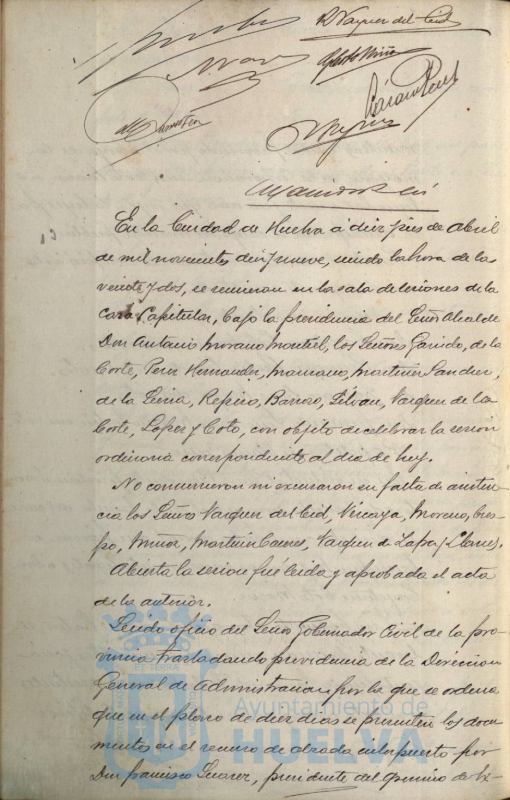 R Vazquez del Cid
En la Ciudad de Huelva á diez y seis de Abril
de mil novecientos diez y nueve, siendo la hora de las
veinte y dos, se reunieron en la sala de sesiones de la
Casa Capitular, bajo la presidencia del Señor Alcalde
Don Antonio Morano Montiel, los Señores Garrido, de la
Corte, Perez Hernandez, Mascaros, Martin Sanchez,
de la Feria, Repiso, Barroso, Silvan, Vazquez de la
Corte, Lopez y Coto, con objeto de celebrar la sesion
ordinaria correspondiente al dia de hoy.
No concurrieron ni excusaron su falta de asisten
cia los Señores Vazquez del Cid, Vizcaya, Moreno, Cres-
po, Muñoz, Martin Caceres, Vazquez de Zapa y Llanes.
Abierta la sesion fue leida y aprobada el acta
de la anterior.
Leido oficio del Señor Gobernador Civil de la pro-
vincia trasladando providencia de la Direccion
General de Administracion, por la que se ordena
que en el plazo de diez dias se presenten los docu
mentos en el recurso de alzada interpuesto por
Don Francisco Suarez, presidente del gremio de
Ayuntamiento de
HUELVA